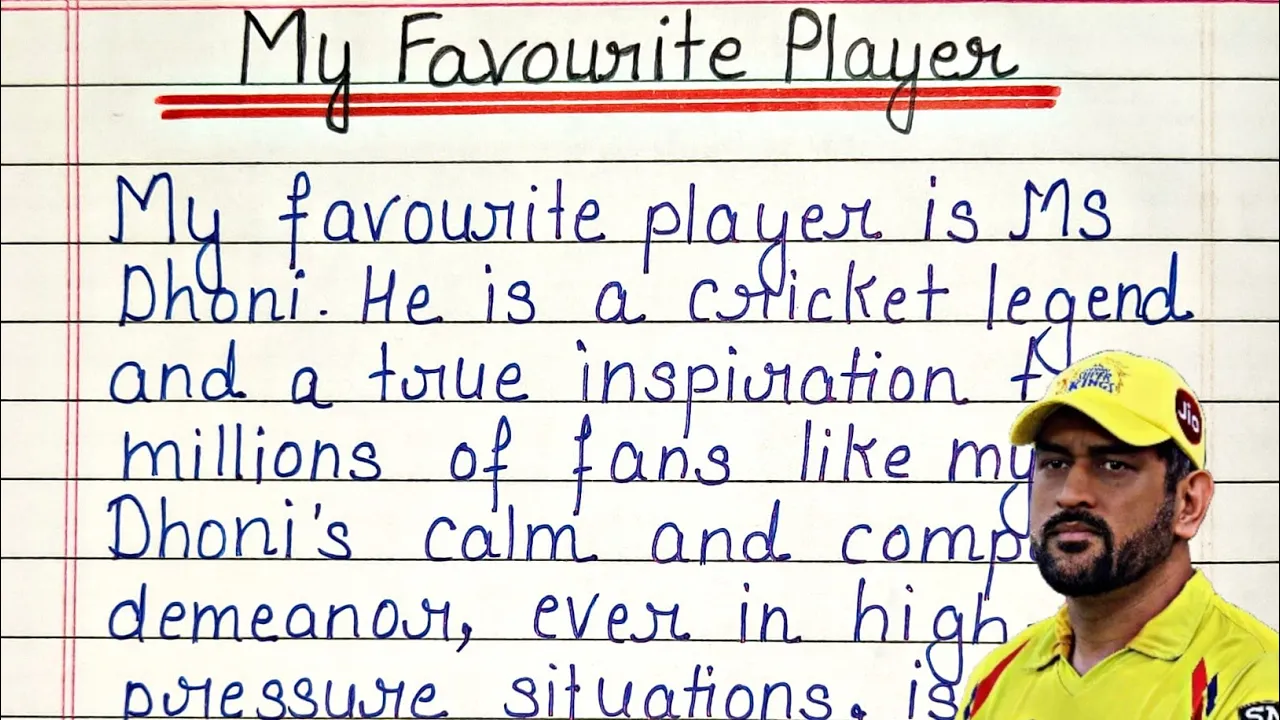 My Favourite Player
My favourite player is Ms
Dhoni. He is a cricket legend
and a true inspiration
millions of fans like my
Dhoni's calm and comp
demeanor, ever in high-
pressure situations. is
KINGS
Jio